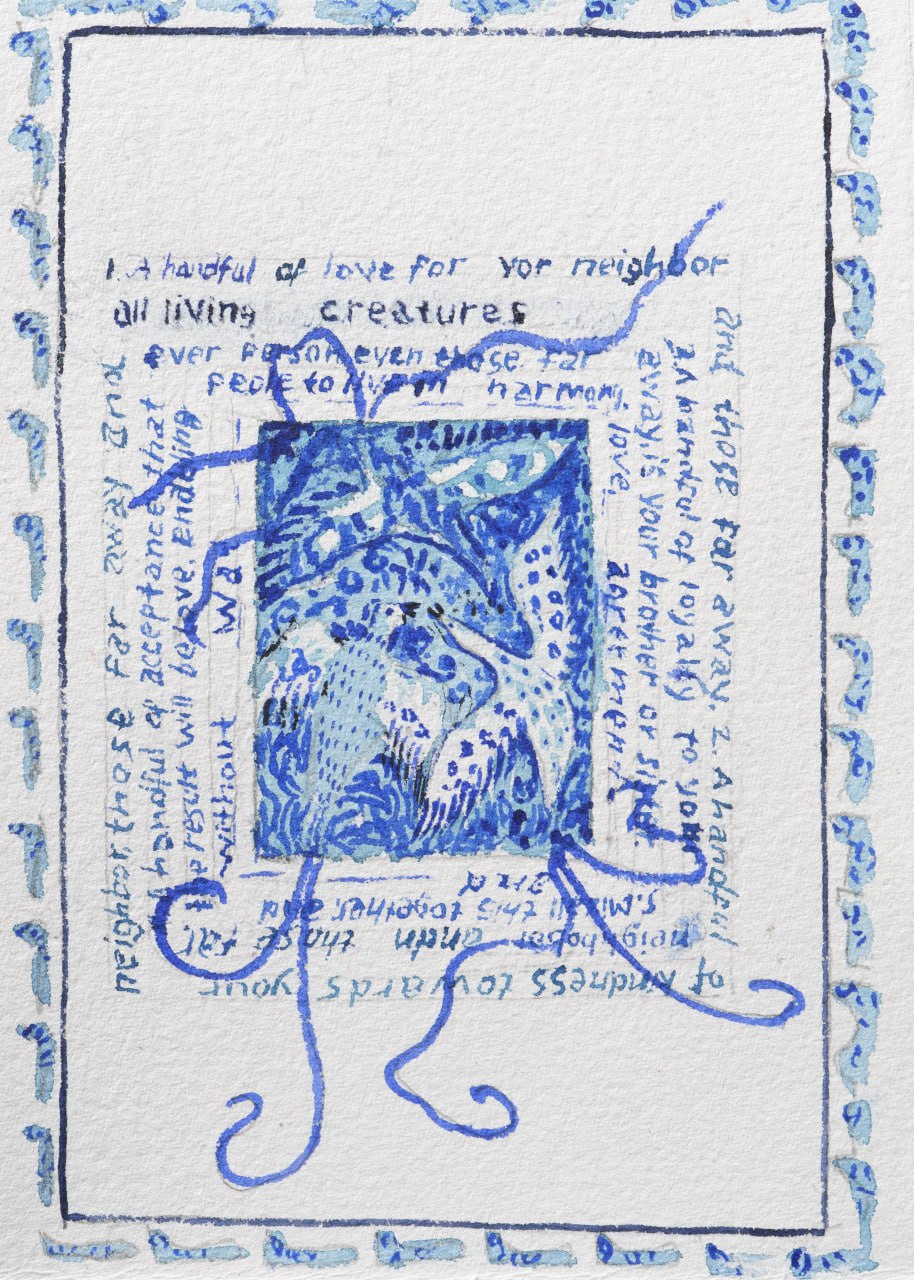 1. A handful of love for yor neighbor
and those far away. 2. A handful
of kindness towards your
neighbor, those far away and
all living creatures
3. A handful of loyalty to your
neighbober those far
A handful of acceptance that
ever person even those far
away, is your brother or sister.
5. Mix all this together and
the result will be love. Ending
peole to live in harmony,
love, agreement
and
without wa